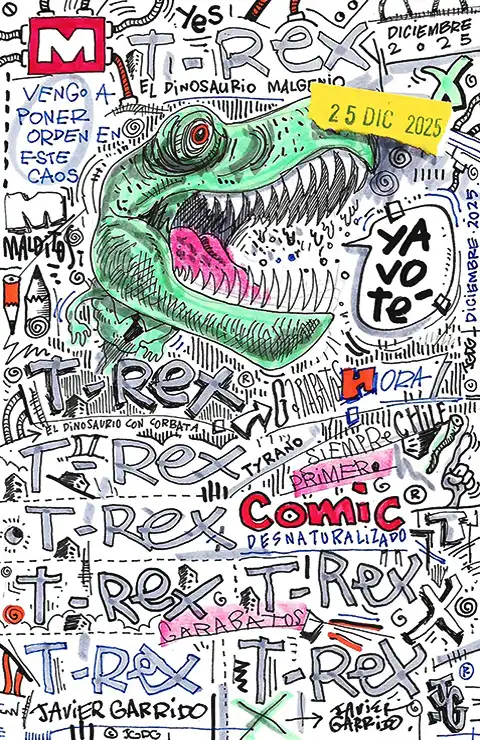 Yes!
M
T-Rex
DICIEMBRE
2025
EL DINOSAURIO MALGENIO
X
VENGO A
PONER
ORDEN EN
ESTE
CAOS
25 DIC 2025
M
MALDITOS
YA
VO
TE-
JGDG + DICIEMBRE.2025.
T-Rex®
HORA
EL DINOSAURIO CON CORBATA
CHILE
T-Rex
TYRANO
SIEMPRE
PRIMERO
T-Rex
Comic®
DESNATURALIZADO
T-Rex
T-Rex
GARABATOS
T-Rex
T-Rex
®
JAVIER GARRIDO
X
JAVIER
GARRIDO.
© JGDG